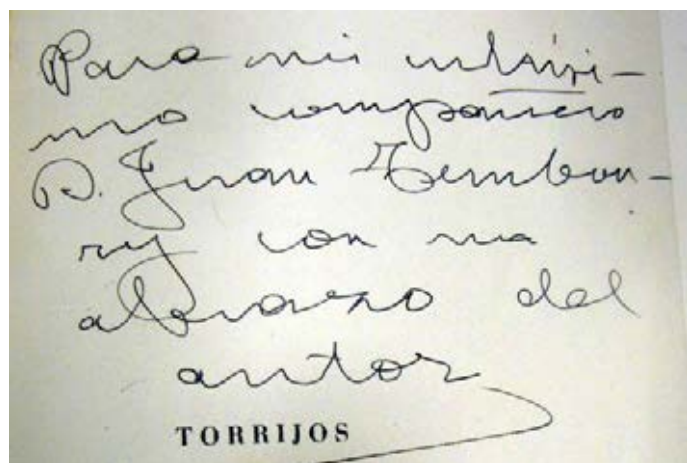 Para mi
mo compañero
D. Juan Tembou-
ry con un
abrazo del
autor
TORRIJOS